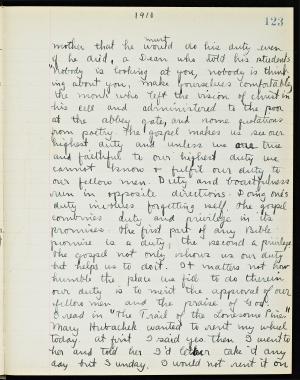 1910
123
must
mother that he would do his duty even
if he died, a Dean who told his students
Nobody is looking at you, nobody is think-
ing about you, make yourselves comfortable,
the monk who left the vision of Christ in
his cell and administered to the poor
at the abbey gate, and some quotations
from poetry. The gospel makes us see our
highest duty and unless we are true
and faithful to our highest duty we
cannot know & fulfil our duty to
our fellow men. Duty and boastfulness
run in opposite directions. Doing one's
duty involves forgetting self. The gospel
combines duty and privilege in its
promises. The first part of any Bible
promise is a duty, the second a privilege.
The gospel not only shows us our duty
but helps us to do it. It matters not how
humble the place we fill to do therein
our duty is to merit the approval of our
fellow men and the praise of God.
I read in "The Trail of the Lonesome Pine."
Mary Hubachek wanted to rent my wheel
today. At first I said yes. Then I went to
her and told her I'd take 'd any
day but Sunday. I would not rent it on